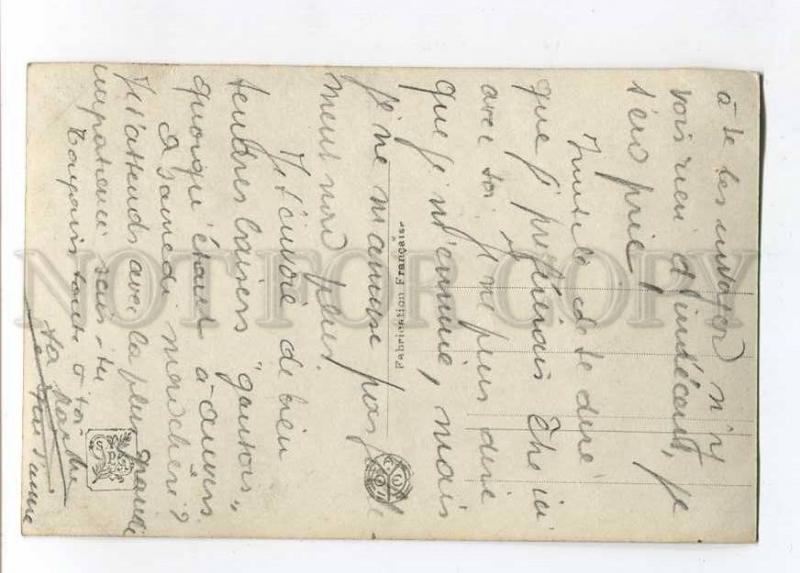 à te les envoyer n'y
vois rien d'indécent, je
t'en prie,
Inutile de te dire
que je préférerais être ici
avec toi. Je ne puis dire
que je m'ennuie, mais
je ne m'amuse pas
ment non plus.
Je t'envoie de bien
tendres baisers "gantois"
quoiqu'étant à Anvers.
A samedi mon chéri?
Je t'attends avec la plus grande
impatience sais-tu
Toujours toute à toi
ta
Fabrication Française
NOT FOR COPY